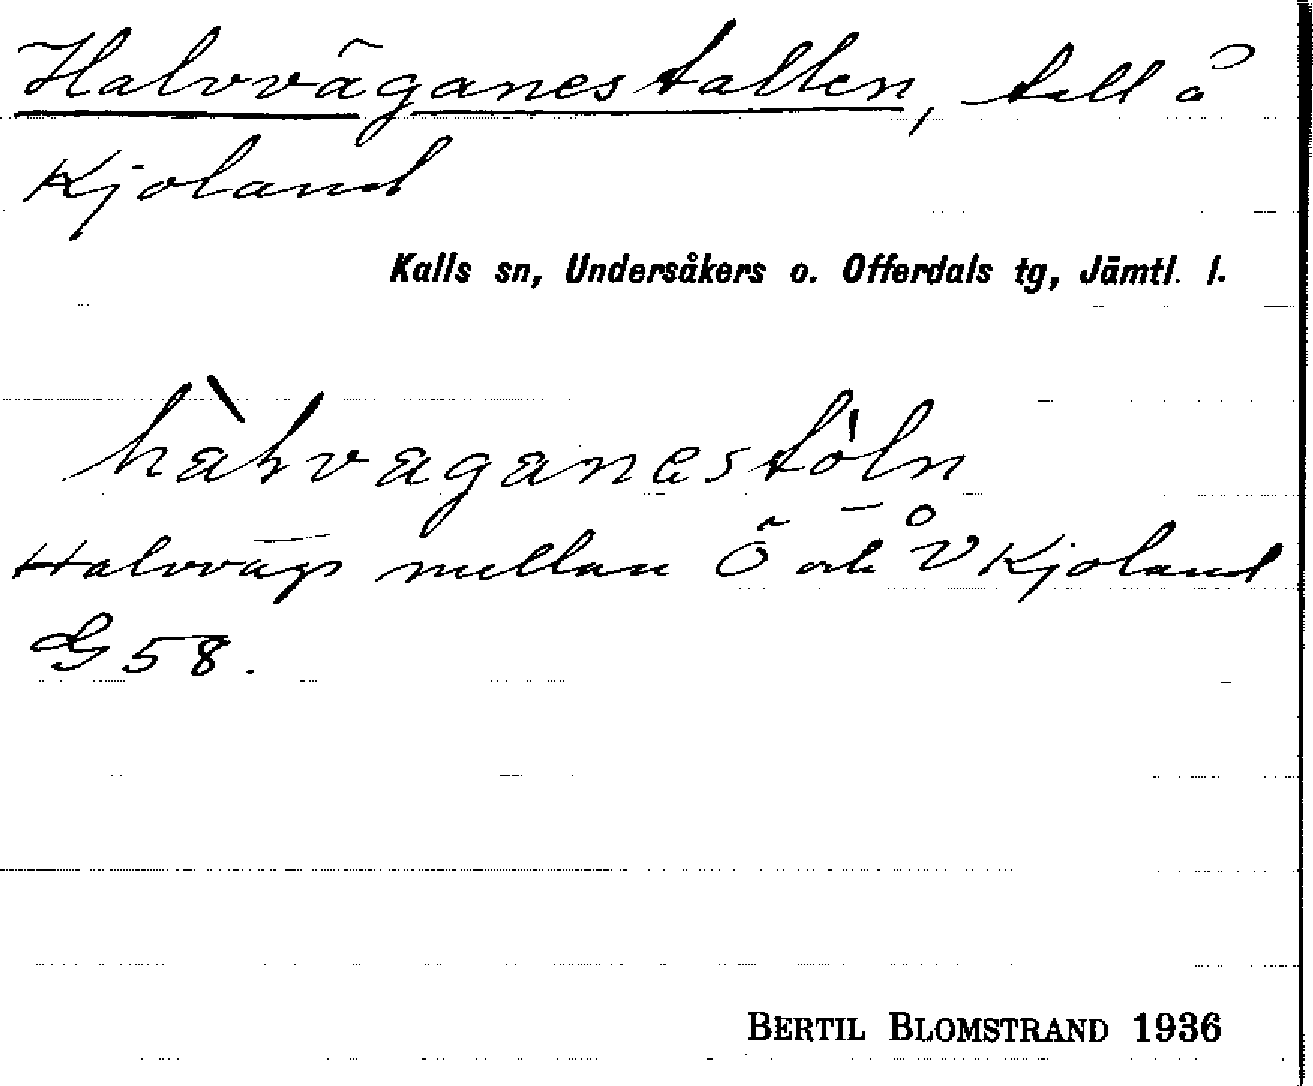 Halvväganestallen, tall å
Kjoland
Kalls sn, Undersåkers o. Offerdals tg, Jämtl. l.
hàhvaganestöln
Halvvägs mellan Ö och V Kjoland
G 58.
BERTIL BLOMSTRAND 1936